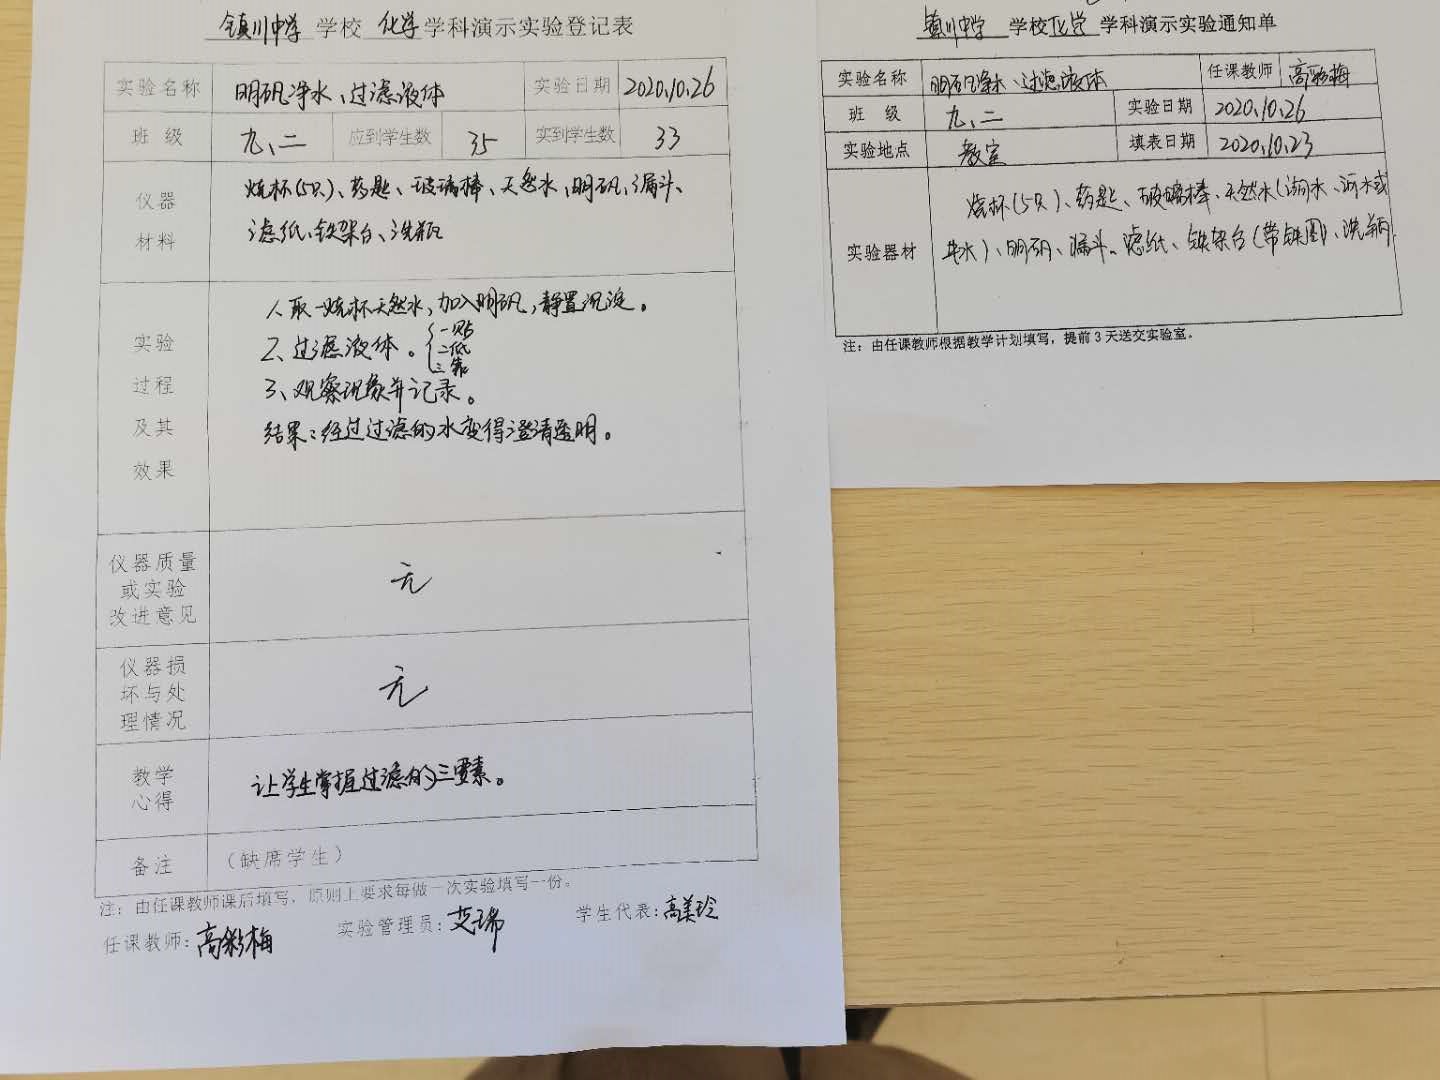 镇川中学 学校 化学 学科演示实验登记表
实验名称 明矾净水、过滤液体 实验日期 2020.10.26
班 级 九、二 应到学生数 35 实到学生数 33
仪器 烧杯(5只)、药匙、玻璃棒、天然水、明矾、漏斗、
材料 滤纸、铁架台、洗瓶
实验
过程
及其
效果
1、取一烧杯天然水,加入明矾,静置沉淀。
2、过滤液体。{一贴
二低
三靠
3、观察现象并记录。
结果:经过过滤的水变得澄清透明。
仪器质量
或实验
改进意见
无
仪器损
坏与处
理情况
无
教学
心得
让学生掌握过滤的三要素。
备注 (缺席学生)
注:由任课教师课后填写,原则上要求每做一次实验填写一份。
任课教师:高彩梅 实验管理员:艾瑞 学生代表:高美玲
镇川中学 学校 化学 学科演示实验通知单
实验名称 明矾净水、过滤液体 任课教师 高彩梅
班 级 九、二 实验日期 2020.10.26
实验地点 教室 填表日期 2020.10.23
实验器材
烧杯(5只)、药匙、玻璃棒、天然水(湖水、河水或
井水)、明矾、漏斗、滤纸、铁架台(带铁圈)、洗瓶
注:由任课教师根据教学计划填写,提前3天送交实验室。